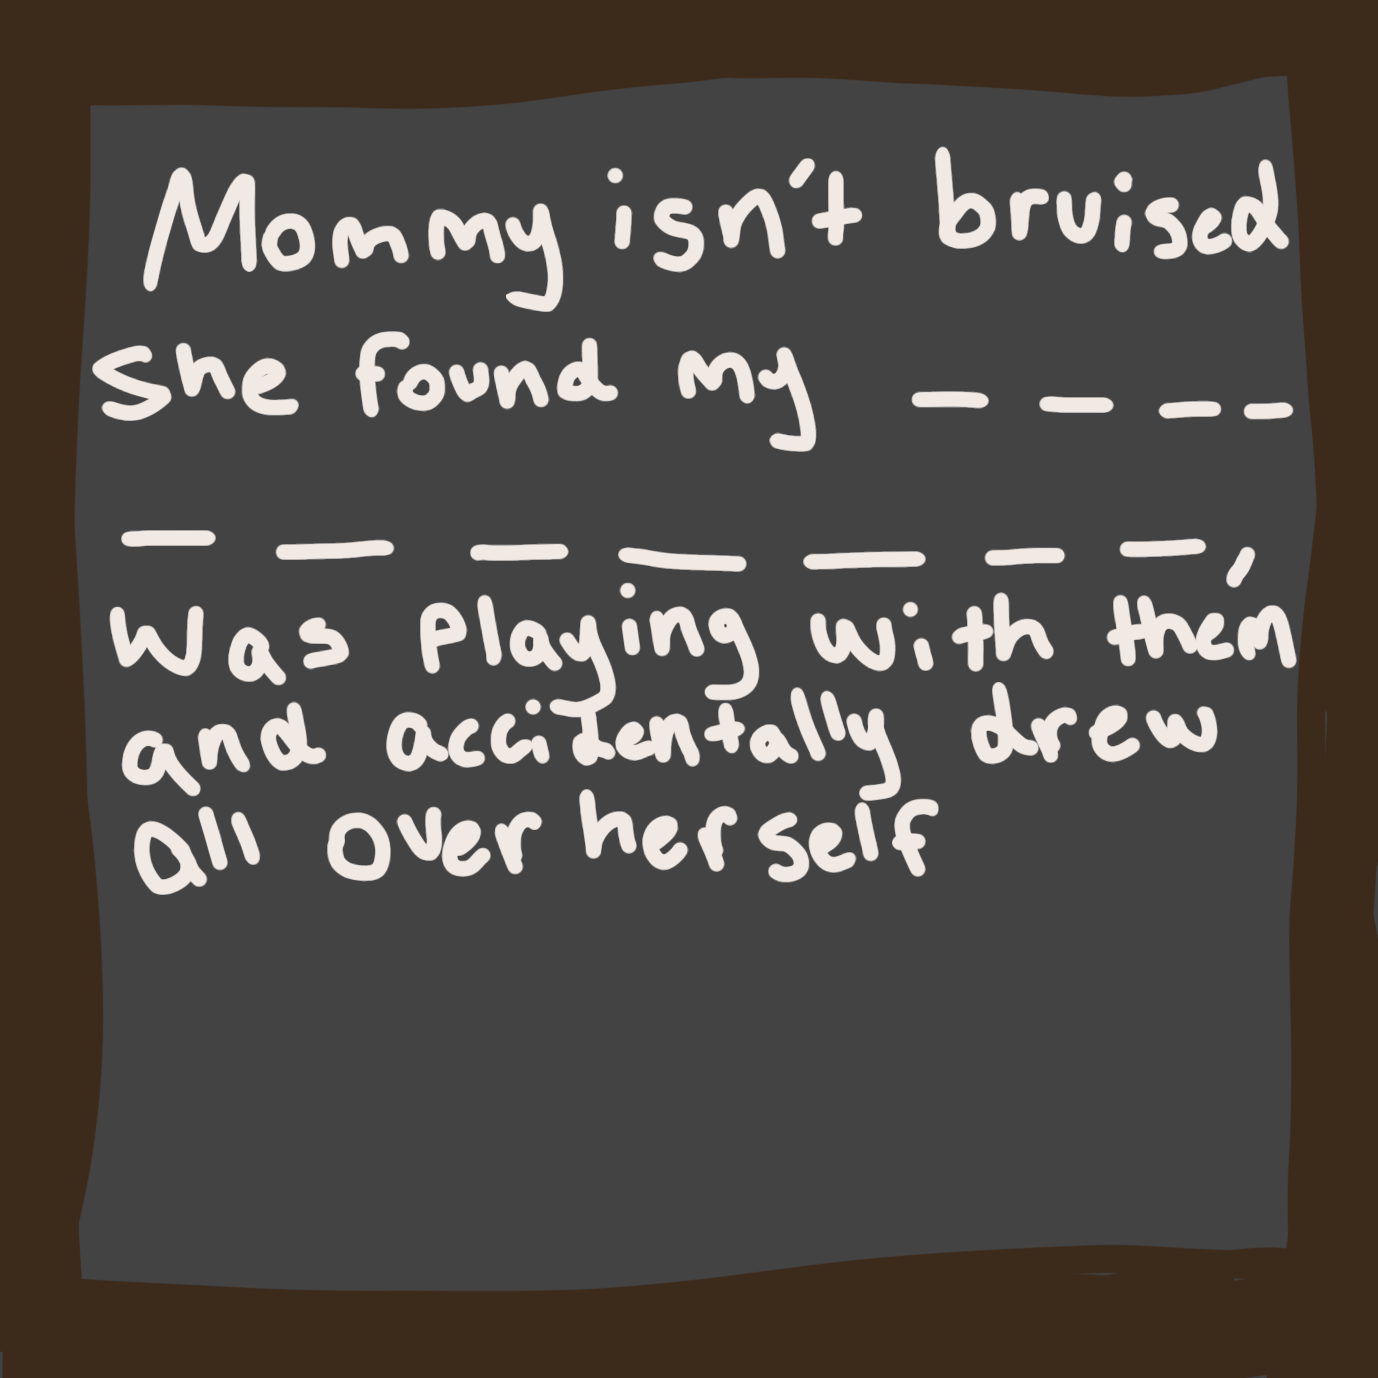 Mommy isn't bruised
She found my _ _ _ _
_ _ _ _ _ _ _,
Was playing with them
and accidentally drew
all over herself